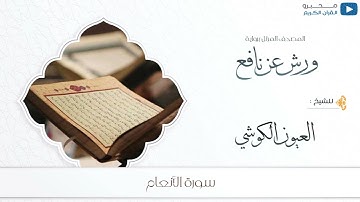 محبرو
القرآن الكريم
المصحف المرتل برواية
ورش عن نافع
للشيخ :
العيون الكوشي
سورة الأنعام